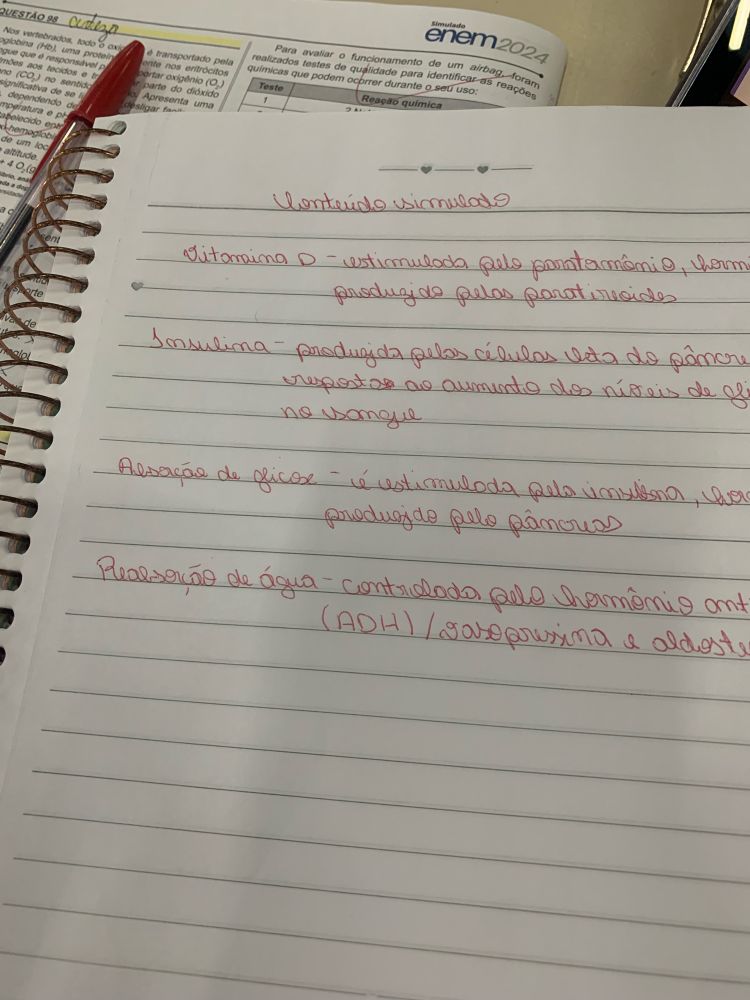 QUESTÃO 98 certeza
Nos vertebrados, todo o é transportado pela
globina (Hb), uma nte nos eritrócitos
gue que é responsável portar oxigênio (O₂)
mões aos tecidos e parte do dióxido
no (CO₂) no sentido Apresenta uma
significativa de se
dependendo desligar
mperatura e
abelecido
hemoglobi
de um
altitude.
+ 4 O₂(g
Simulado
enem2024
Para avaliar o funcionamento de um airbag, foram
realizados testes de qualidade para identificar as reações
químicas que podem ocorrer durante o seu uso:
Teste Reação química
1
Conteúdo simulado
Vitamina D - estimulada pelo paratormônio, horm
produzido pelas paratireoides
Insulina - produzida pelas células beta do pâncre
resposta ao aumento dos níveis de gli
no sangue
Absorção de glicose - é estimulada pela insulina, hor
produzido pelo pâncreas
Reabsorção de água - controlada pelo hormônio anti
(ADH) / vasopressina e aldoste